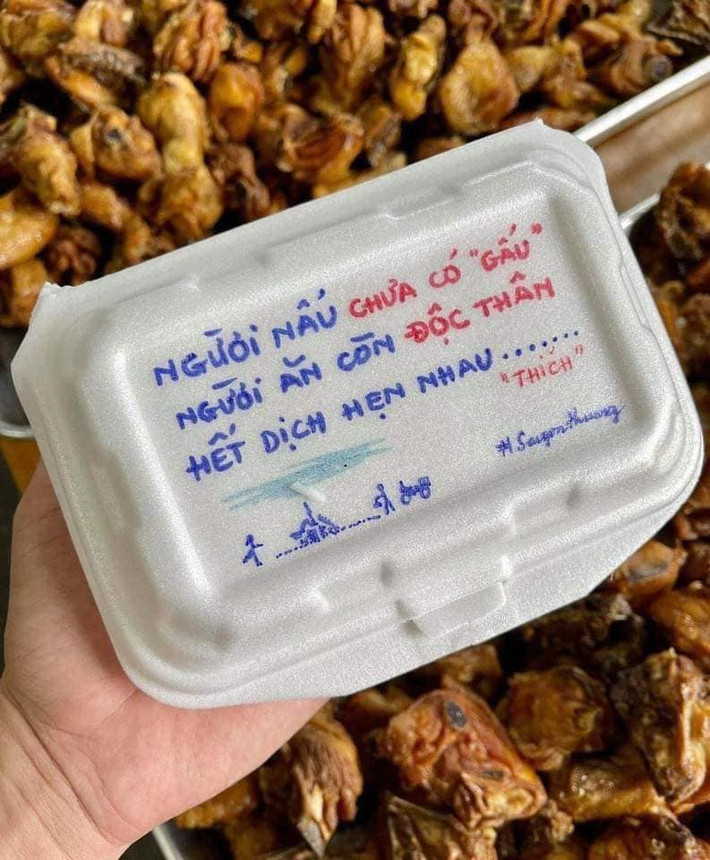 NGƯỜI NẤU CHƯA CÓ "GẤU"
NGƯỜI ĂN CÒN ĐỘC THÂN
HẾT DỊCH HẸN NHAU .......
"THÍCH"
#Saigonthuong